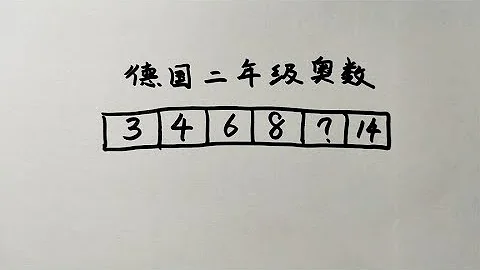 德国二年级奥数
3 4 6 8 ? 14